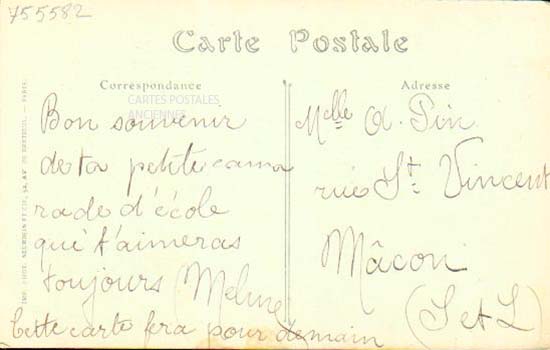 755582
Carte Postale
Correspondance
CARTES POSTALES
ANCIENNES
Bon souvenir
de ta petite cama
rade d'école
qui t'aimeras
toujours (Meline)
Cette carte fera pour demain
Adresse
Melle A. Pin
rue St. Vincent
Mâcon
(S et L)